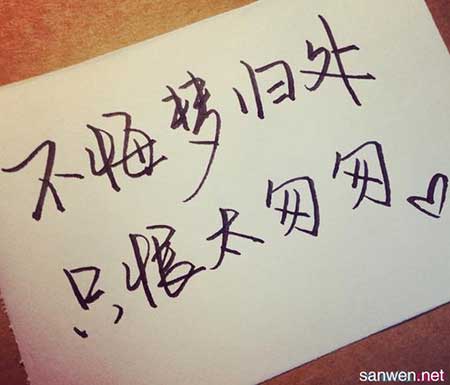 不悔梦归处
只恨太匆匆♡
sanwen.net